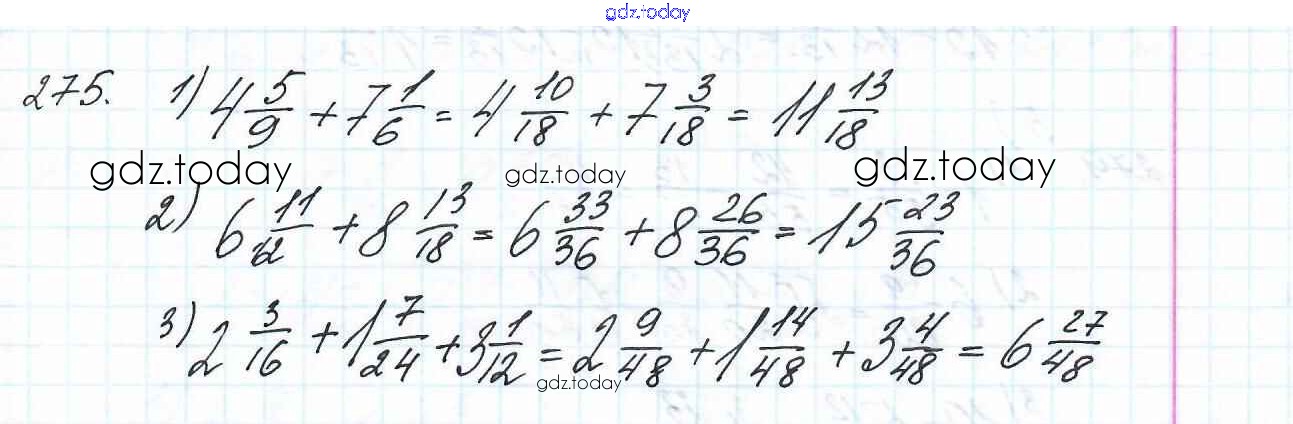 gdz.today
275. 1) 4 5/9 + 7 1/6 = 4 10/18 + 7 3/18 = 11 13/18
gdz.today gdz.today gdz.today
2) 6 11/12 + 8 13/18 = 6 33/36 + 8 26/36 = 15 23/36
3) 2 3/16 + 1 7/24 + 3 1/12 = 2 9/48 + 1 14/48 + 3 4/48 = 6 27/48
gdz.today